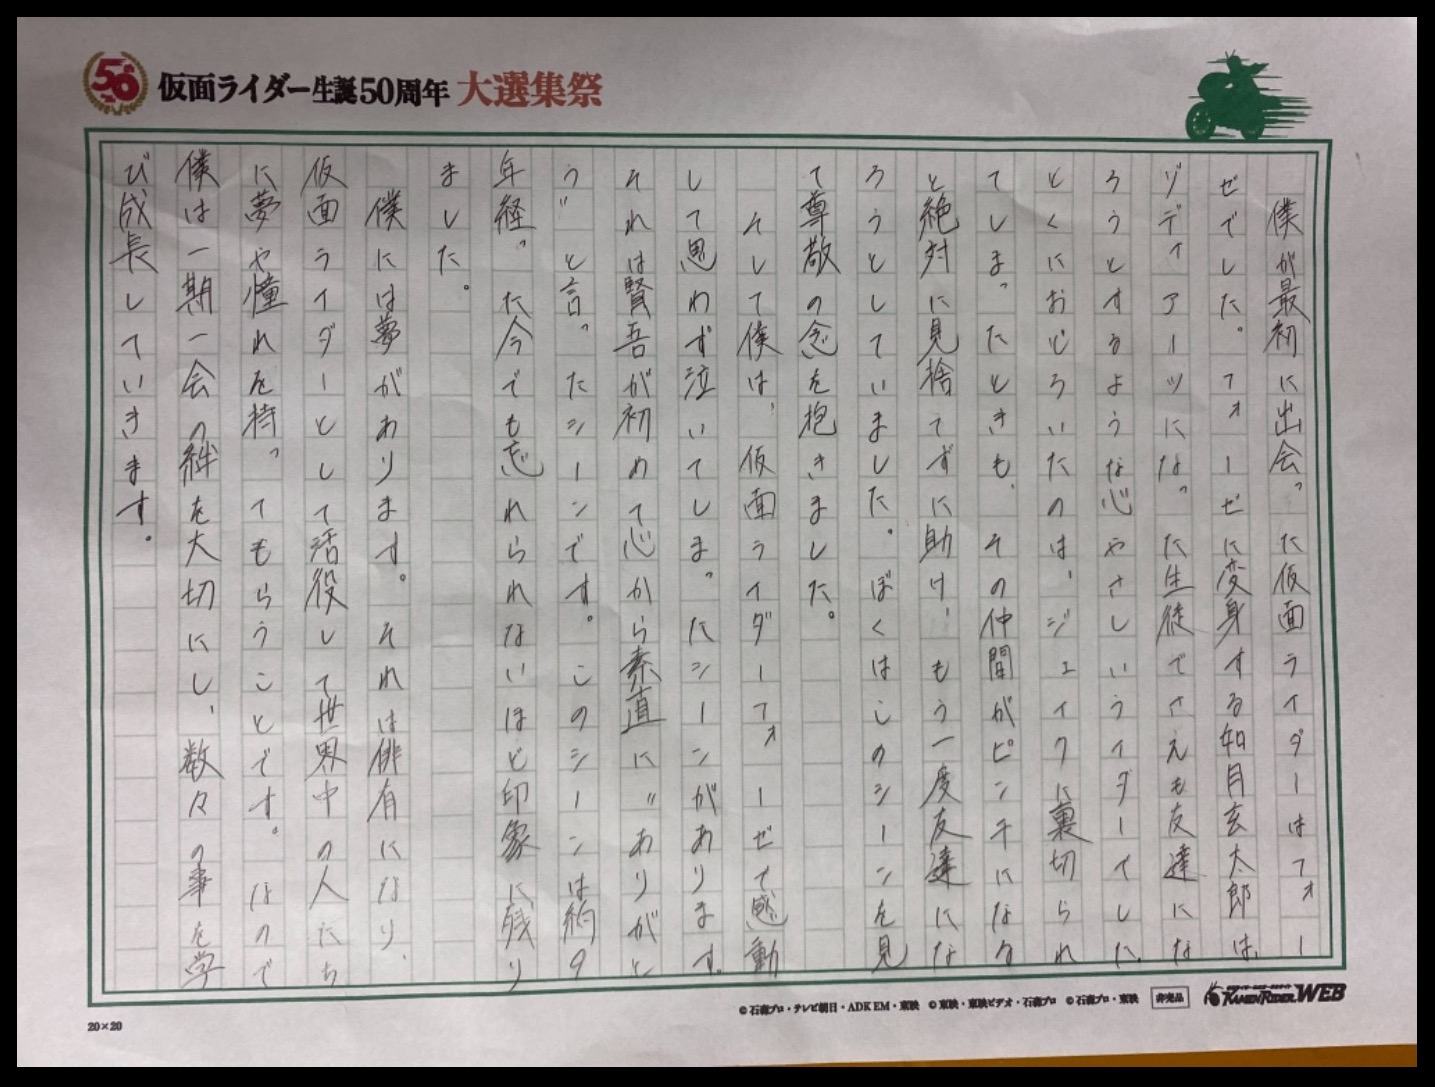 仮面ライダー生誕50周年 大選集祭
僕が最初に出会った仮面ライダーはフォー
ゼでした。フォーゼに変身する如月弦太郎は、
ゾディアーツになった生徒でさえも友達にな
ろうとするような心やさしいライダーでした。
とくにおどろいたのは、ジェイクに裏切られ
てしまったときも、その仲間がピンチになる
と絶対に見捨てずに助け、もう一度友達にな
ろうとしていました。ぼくはこのシーンを見
て尊敬の念を抱きました。
そして僕は、仮面ライダーフォーゼで感動
して思わず泣いてしまったシーンがあります。
それは賢吾が初めて心から素直に〝ありがと
う〟と言ったシーンです。このシーンは約9
年経った今でも忘れられないほど印象に残り
ました。
僕には夢があります。それは俳有になり、
仮面ライダーとして活役して世界中の人たち
に夢や憧れを持ってもらうことです。なので
僕は一期一会の絆を大切にし、数々の事を学
び成長していきます。
©石森プロ・テレビ朝日・ADK EM・東映 ©東映・東映ビデオ・石森プロ ©石森プロ・東映 非売品 KAMEN RIDER WEB
20×20